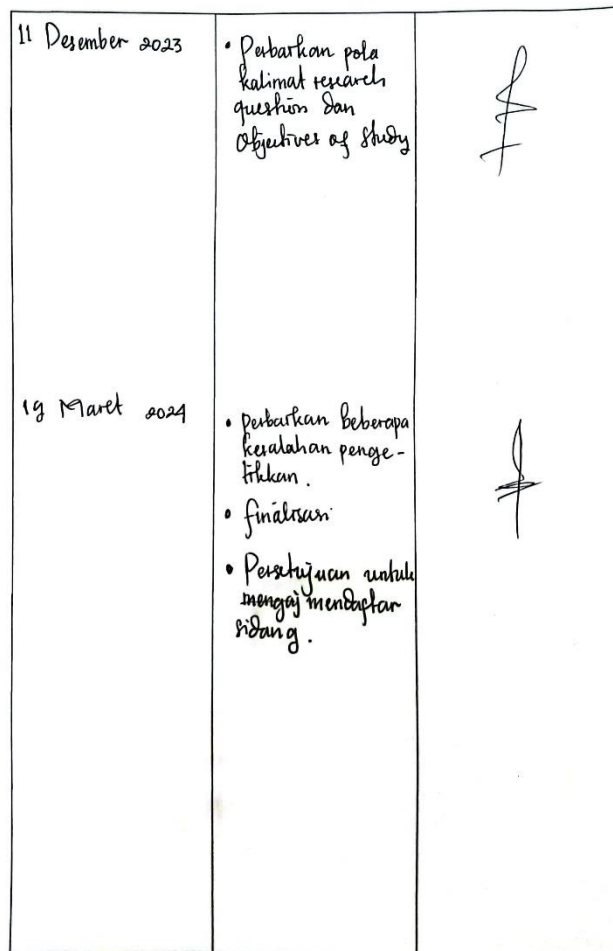 11 Desember 2023
• Perbarkan pola
kalimat research
question dan
Objectives of Study
19 Maret 2024
• perbarkan beberapa
kesalahan penge-
tikkan.
• finalisasi
• Persetujuan untuk
mengaj mendaftar
sidang.